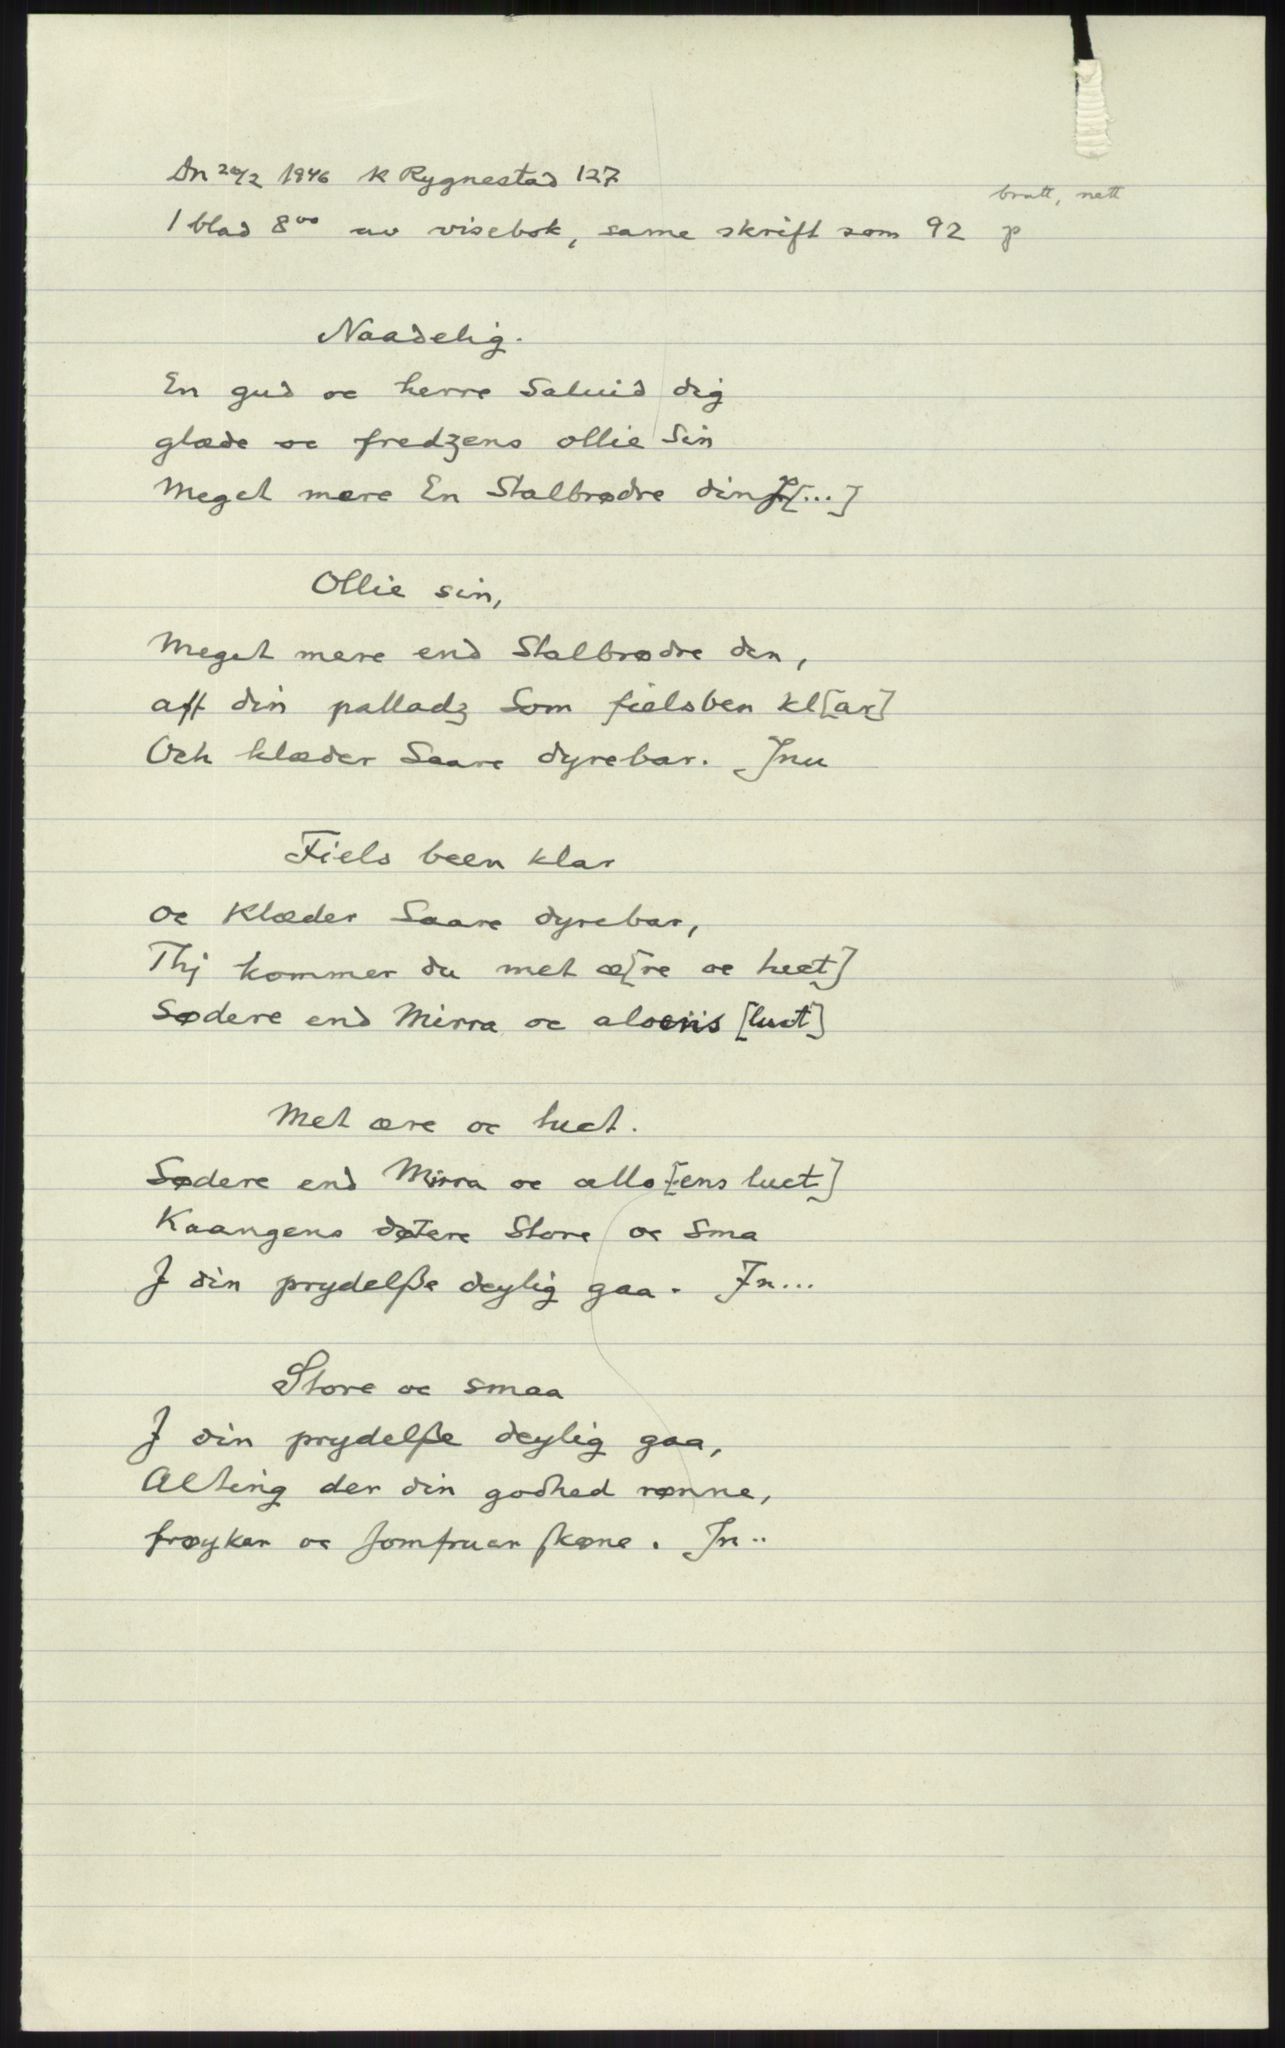 An 20/2 1946 K Rygnestad 127
brutt, nett
1 blad 8vo av visebok, same skrift som 92 p
Naadelig.
En gud oc herre Saluid dig
glæde oc fredzens ollie Sin
Meget mere En Stalbrødre din J[...]
Ollie sin,
Meget mere end Stalbrødre den,
aff din palladz Som fielsben kl[ar]
Och klæder Saare dyrebar. Jnu
Fiels been klar
oc Klæder Saare dyrebar,
Thj kommer du met æ[re oc huct]
Sødere end Mirra oc aloeiis [luct]
Met ære oc huct.
Sødere end Mirra oc allo[ens luct]
Kaangens døtere Store oc Sma
J din prydelße deylig gaa. Jn...
Store oc smaa
J din prydelße deylig gaa,
Alting der din godhed rønne,
frøyker oc Jomfruer skøne. Jn..